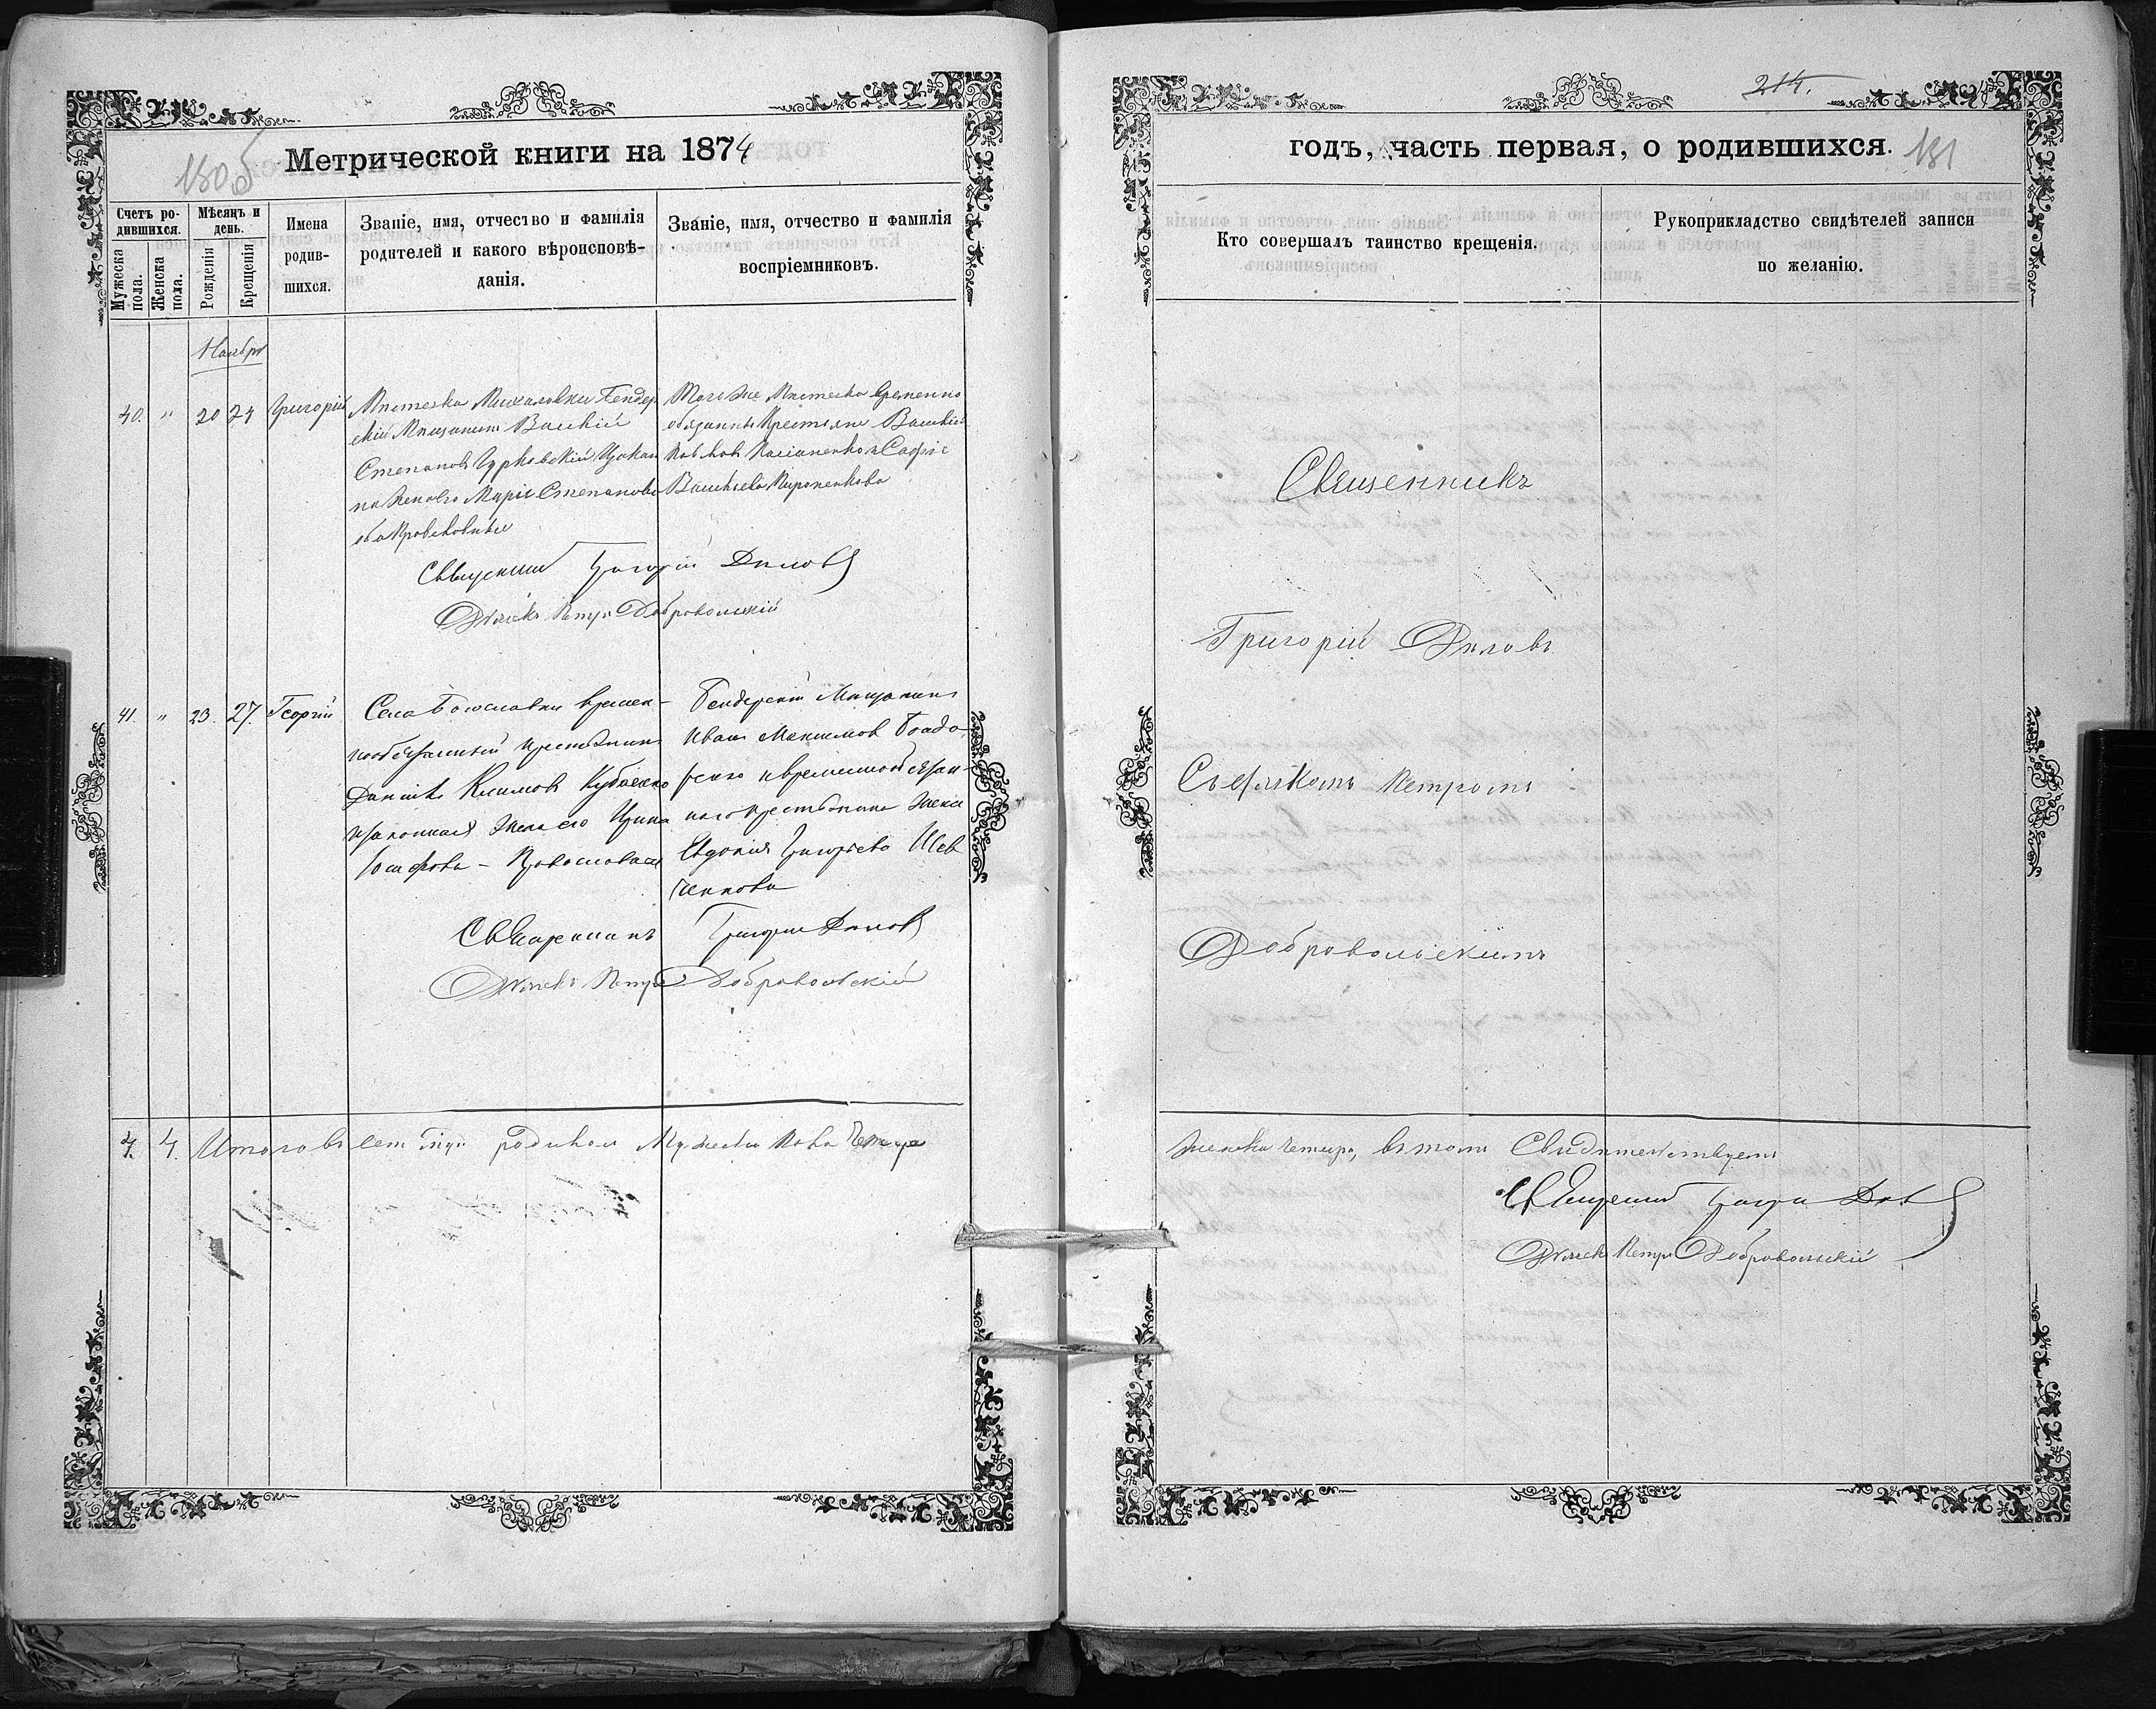 180б
Метрической книги на 1874
Счетъ ро-
дившихся.
Мужеска
пола.
Женска
пола.
Мѣсяцъ и
день.
Рожденія
Крещенія
Имена
родив-
шихся.
Званіе, имя, отчество и фамилія
родителей и какого вѣроисповѣ-
данія.
Званіе, имя, отчество и фамилія
воспріемниковъ.
Ноябрь
40. " 20 24 Григорій
Мѣстечка Михаловки Бендер
скій Мѣщанинъ Василій
Степановъ
на Жена его Марія Степанова
оба Православные
Того же Мѣстечка временно
обязанный Крестьянинъ Василій
Павловъ и Софія
Васильева
Священникъ Григорій Диловъ
Дьячекъ Петръ Добровольскій
41. " 23. 27. Георгій
Села Богославки времен-
нообязанный крестьянинъ
Даніилъ Климовъ
и законная жена его Ирина
Іосифова - Православныя
Бендерскій Мѣщанинъ
Иванъ Максимовъ
и временнообязан-
наго крестьянина жена
Евдокія Григорьева Шев
ченкова
Священникъ Григорій Диловъ
Дьячекъ Петръ Добровольскій
4. 4. Итого въ сем родилось Мужеска Пола Четыре
214.
годъ, часть первая, о родившихся. 181
Кто совершалъ таинство крещенія.
Рукоприкладство свидѣтелей записи
по желанію.
Священникъ
Григорій Диловъ
Съ Дьячкомъ Петромъ
Добровольскимъ
женска четыре, въ томъ Свидѣтельствуемъ
Священникъ Григорій Диловъ
Дьячекъ Петръ Добровольскій